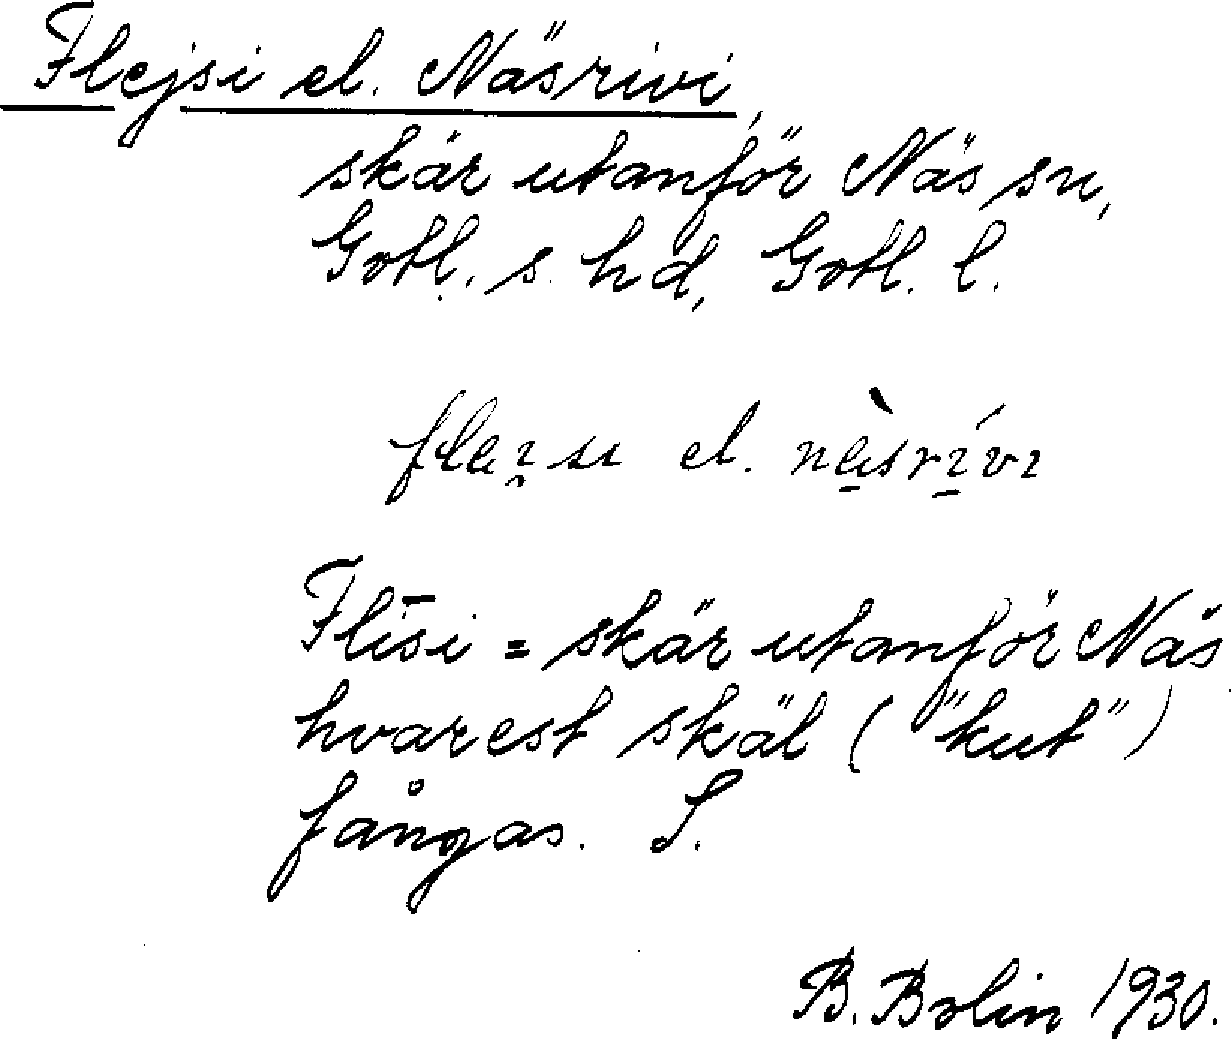 Flejsi el. Näsrivi,
skär utanför Näs sn,
Gotl. s. hd, Gotl. l.
flaɪ̯sɪ el. nè̠srɪ̠́vɪ
Flīsi = skär utanför Näs
hvarest skäl ("kut")
fångas. S.
B. Bolin 1930.